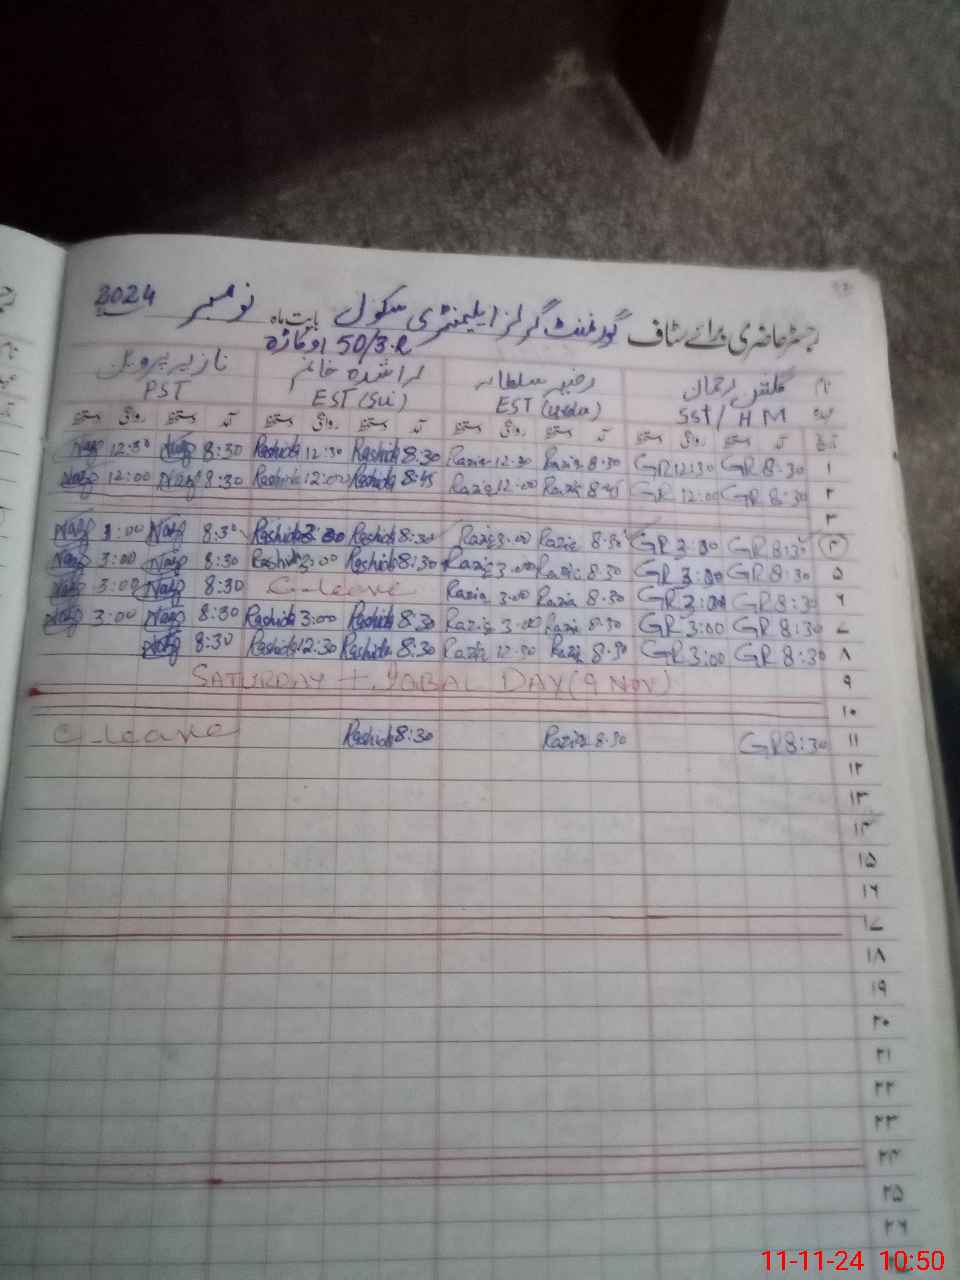 رجسٹر حاضری برائے سٹاف گورنمنٹ گرلز ایلیمنٹری سکول بابت ماہ نومبر 2024
50/3.R اوکاڑہ
نام گلشن رحمان رضیہ سلطانہ راشدہ خانم نازیہ پروین
عہدہ SST/HM EST (Urdu) EST (Sci) PST
تاریخ آمد دستخط روانگی دستخط آمد دستخط روانگی دستخط آمد دستخط روانگی دستخط آمد دستخط روانگی دستخط
۱ GR 8:30 GR 12:30 Razia 8:30 Razia 12:30 Rashida 8:30 Rashida 12:30 8:30 Naz 12:30 Naz
۲ GR 8:30 GR 12:00 Razia 8:45 Razia 12:00 Rashida 8:45 Rashida 12:00 8:30 Naz 12:00 Naz
۳
۴ GR 8:30 GR 3:00 Razia 8:30 Razia 3:00 Rashida 8:30 Rashida 3:00 8:30 Naz 3:00 Naz
۵ GR 8:30 GR 3:00 Razia 8:30 Razia 3:00 Rashida 8:30 Rashida 3:00 8:30 Naz 3:00 Naz
۶ GR 8:30 GR 3:00 Razia 8:30 Razia 3:00 C-leave 8:30 Naz 3:00 Naz
۷ GR 8:30 GR 3:00 Razia 8:30 Razia 3:00 Rashida 8:30 Rashida 3:00 8:30 Naz 3:00 Naz
۸ GR 8:30 GR 3:00 Razia 8:30 Razia 12:30 Rashida 8:30 Rashida 12:30 8:30 Naz
۹ SATURDAY + IQBAL DAY (9 NOV)
۱۰
۱۱ GR 8:30 Razia 8:30 Rashida 8:30 C-leave
۱۲
۱۳
۱۴
۱۵
۱۶
۱۷
۱۸
۱۹
۲۰
۲۱
۲۲
۲۳
۲۴
۲۵
۲۶
11-11-24 10:50